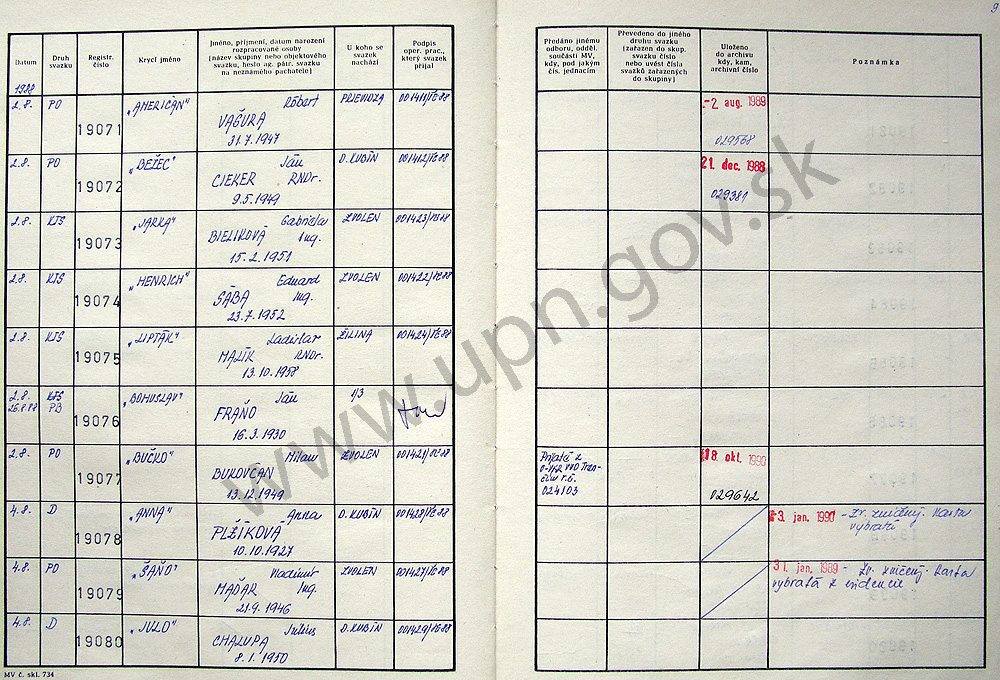 9
Datum
Druh svazku
Registr. číslo
Krycí jméno
Jméno, příjmení, datum narození
rozpracované osoby
(název skupiny nebo objektového
svazku, heslo ag. pátr. svazku
na neznámého pachatele)
U koho se
svazek
nachází
Podpis
oper. prac.,
který svazek
přijal
Předáno jinému
odboru, odděl.
součásti MV,
kdy, pod jakým
čís. jednacím
Převedeno do jiného
druhu svazku
(zařazen do skup.
svazku číslo
nebo uvést čísla
svazků zařazených
do skupiny)
Uloženo
do archivu
kdy, kam,
archivní číslo
Poznámka
1988
2.8. PO 19071 „AMERIČAN" Róbert PRIEVIDZA
VAGURA
31.7.1947
-2 aug. 1989
029568
2.8. PO 19072 „BEŽEC" Ján D. KUBÍN 001412/
CIEKER RNDr.
9.5.1949
21. dec. 1988
029381
2.8. KTS 19073 „JARKA" Gabriela ZVOLEN 001423/
BIELIKOVÁ Ing.
15.2.1951
2.8. KTS 19074 „HENRICH" Eduard ZVOLEN 001422/
SÁBA Ing.
23.7.1952
2.8. KTS 19075 „LIPTÁK" Ladislav ŽILINA 001424/
MALÍK RNDr.
13.10.1958
2.8. KTS 19076 „BOHUSLAV" Ján 1/3
26.8.88 PB
FRAŇO
16.3.1930
2.8. PO 19077 „BUČKO" Milan ZVOLEN 001421/
BUKOVČAN
13.12.1949
Prijaté z
024103
18. okt. 1990
029642
4.8. D 19078 „ANNA" Anna D. KUBÍN 001428/
PLŽÍKOVÁ
10.10.1927
3. jan. 1990 - Zv. zničený. Karta
vybratá
4.8. PO 19079 „ŠAŇO" Vladimír ZVOLEN 001427/
MAĎAR Ing.
21.9.1946
31. jan. 1989 - Zv. zničený. Karta
vybratá z evidencie
4.8. D 19080 „JULO" Július D. KUBÍN 001429/
CHALUPA
8.1.1950
MV č. skl. 734
www.upn.gov.sk